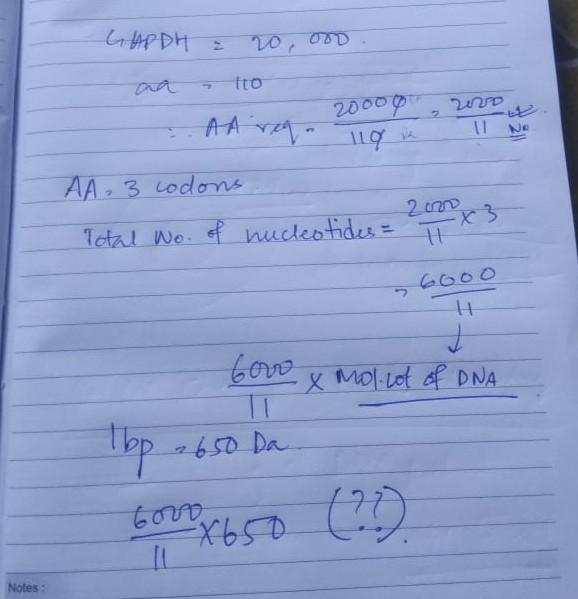 GAPDH = 20,000.
aa = 110
∴ AA req = 20000/110 = 2000/11 No
AA = 3 codons.
Total No. of nucleotides = 2000/11 × 3
= 6000/11
↓
6000/11 × Mol. wt of DNA
1bp = 650 Da
6000/11 × 650 (??).
Notes :